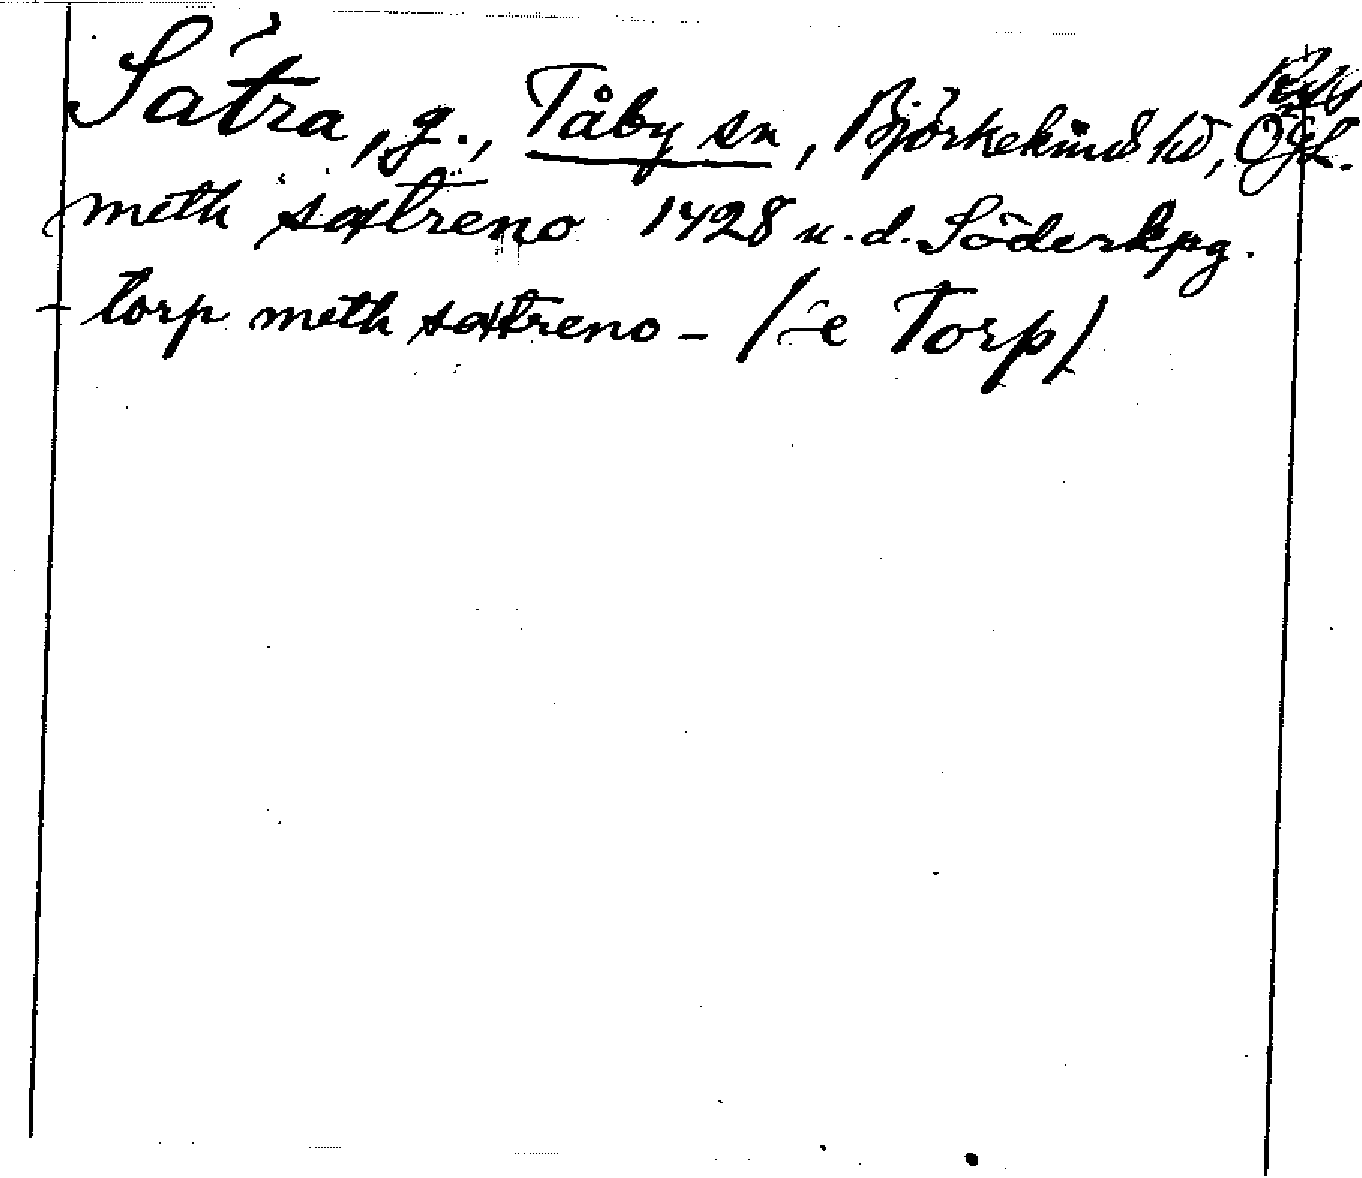 Sätra, g., Tåby sn, Björkekinds hd, Ögl.
meth sætreno 1428 u.d. Söderkpg.
- torp meth sætreno - (se Torp)